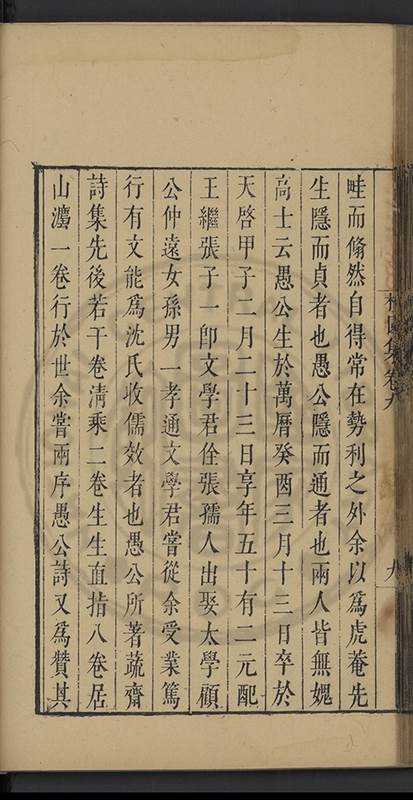 畦而翛然自得常在勢利之外余以爲虎菴先
生隱而貞者也愚公隱而通者也兩人皆無媿
高士云愚公生於萬曆癸酉三月十三日卒於
天啓甲子二月二十三日享年五十有二元配
王繼張子一卽文學君佺張孺人出娶太學顧
公仲遠女孫男一孝通文學君嘗從余受業篤
行有文能爲沈氏收儒效者也愚公所著蔬齋
詩集先後若干卷淸乘二卷生生直指八卷居
山灋一卷行於世余嘗兩序愚公詩又爲贊其
集卷九
九